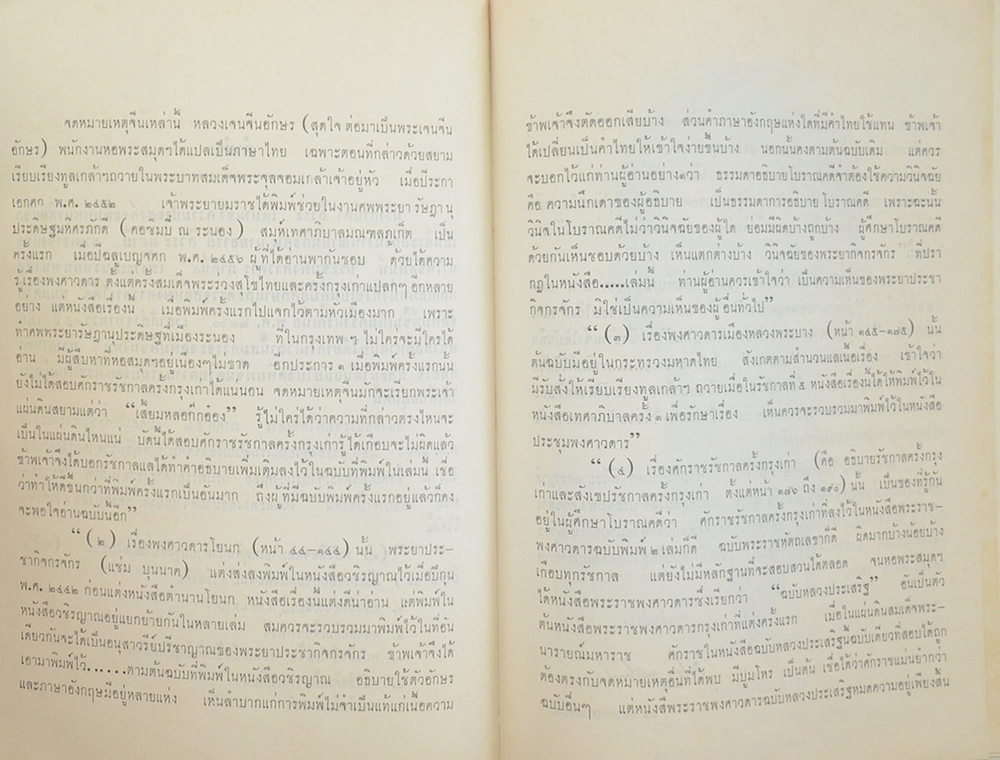 จดหมายเหตุจีนเหล่านี้ หลวงเจนจีนอักษร (สุดใจ ต่อมาเป็นพระเจนจีน
อักษร) พนักงานหอพระสมุดฯได้แปลเป็นภาษาไทย เฉพาะตอนที่กล่าวด้วยสยาม
เรียบเรียงทูลเกล้าฯถวายในพระบาทสมเด็จพระจุลจอมเกล้าเจ้าอยู่หัว เมื่อปีระกา
เอกศก พ.ศ. ๒๔๕๒ เจ้าพระยายมราชได้พิมพ์ช่วยในงานศพพระยารัษฎานุ
ประดิษฐมหิศรภักดี (คอซิมบี้ ณ ระนอง) สมุหเทศาภิบาลมณฑลภูเก็ต เป็น
ครั้งแรก เมื่อปีฉลูเบญจศก พ.ศ. ๒๔๕๖ ผู้ที่ได้อ่านพากันชอบ ด้วยได้ความ
รู้เรื่องพงศาวดาร ตั้งแต่ครั้งสมเด็จพระร่วงสุโขไทยและครั้งกรุงเก่าแปลกๆอีกหลาย
อย่าง แต่หนังสือเรื่องนี้ เมื่อพิมพ์ครั้งแรกไปแจกไว้ตามหัวเมืองมาก เพราะ
ทำศพพระยารัษฎานุประดิษฐที่เมืองระนอง ที่ในกรุงเทพ ฯ ไม่ใคร่จะมีใครได้
อ่าน มีผู้สืบหาที่หอสมุดฯอยู่เนืองๆไม่ขาด อีกประการ ๑ เมื่อพิมพ์ครั้งแรกนั้น
ยังไม่ได้สอบศักราชรัชกาลครั้งกรุงเก่าได้แน่นอน จดหมายเหตุจีนมักจะเรียกพระเจ้า
แผ่นดินสยามแต่ว่า “เสี้ยมหลอก๊กอ๋อง” รู้ไม่ใคร่ได้ว่าความที่กล่าวตรงไหนจะ
เป็นในแผ่นดินไหนแน่ บัดนี้ได้สอบศักราชรัชกาลครั้งกรุงเก่ารู้ได้เกือบจะไม่ผิดแล้ว
ข้าพเจ้าจึงได้บอกรัชกาลแลได้ทำคำอธิบายเพิ่มเติมลงไว้ในฉบับที่พิมพ์ในเล่มนี้ เชื่อ
ว่าทำให้ดีขึ้นกว่าที่พิมพ์ครั้งแรกเป็นอันมาก ถึงผู้ที่มีฉบับพิมพ์ครั้งแรกอยู่แล้วก็คง
จะพอใจอ่านฉบับนี้อีก”
“(๒) เรื่องพงศาวดารโยนก (หน้า ๔๔–๑๔๔) นั้น พระยาประ–
ชากิจกรจักร (แช่ม บุนนาค) แต่งส่งลงพิมพ์ในหนังสือวชิรญาณไว้เมื่อปีกุน
พ.ศ. ๒๔๔๒ ก่อนแต่งหนังสือตานานโยนก หนังสือเรื่องนี้แต่งดีน่าอ่าน แต่พิมพ์ใน
หนังสือวชิรญาณอยู่แยกย้ายกันในหลายเล่ม สมควรจะรวบรวมมาพิมพ์ไว้ในที่อัน
เดียวกันจะได้เป็นอนุสาวรีย์ปรีชาญาณของพระยาประชากิจกรจักร ข้าพเจ้าจึงได้
เอามาพิมพ์ไว้......ตามต้นฉบับที่พิมพ์ในหนังสือวชิรญาณ อธิบายใช้ตัวอักษร
และภาษาอังกฤษมีอยู่หลายแห่ง เห็นลำบากแก่การพิมพ์ไม่จำเป็นแท้แก่เนื้อความ
ข้าพเจ้าจึงตัดออกเสียบ้าง ส่วนคำภาษาอังกฤษแห่งใดที่มีคำไทยใช้แทน ข้าพเจ้า
ได้เปลี่ยนเป็นคำไทยให้เข้าใจง่ายขึ้นบ้าง นอกนั้นคงตามต้นฉบับเดิม แต่ควร
จะบอกไว้แก่ท่านผู้อ่านอย่าง๑ว่า ธรรมดาอธิบายโบราณคดีจำต้องใช้ความวินิจฉัย
คือ ความนึกเดาของผู้อธิบาย เป็นธรรมดาการอธิบายโบราณคดี เพราะฉะนั้น
วินิจในโบราณคดีไม่ว่าวินิจฉัยของผู้ใด ย่อมมีผิดบ้างถูกบ้าง ผู้ศึกษาโบราณคดี
ด้วยกันเห็นชอบด้วยบ้าง เห็นแตกต่างบ้าง วินิจฉัยของพระยากิจกรจักร ที่ปรา
กฏในหนังสือ.....เล่มนี้ ท่านผู้อ่านควรเข้าใจว่า เป็นความเห็นของพระยาประชา
กิจกรจักร มิใช่เป็นความเห็นของผู้อื่นทั่วไป”
“(๓) เรื่องพงศาวดารเมืองหลวงพระบาง (หน้า ๑๔๕–๑๗๕) นั้น
ต้นฉบับมีอยู่ในกระทรวงมหาดไทย สังเกตตามสำนวนแลเนื้อเรื่อง เข้าใจว่า
มีรับสั่งให้เรียบเรียงทูลเกล้าฯ ถวายเมื่อในรัชกาลที่ ๕ หนังสือเรื่องนี้ได้ให้พิมพ์ไว้ใน
หนังสือเทศาภิบาลครั้ง ๑ เพื่อรักษาเรื่อง เห็นควรจะรวบรวมมาพิมพ์ไว้ในหนังสือ
ประชุมพงศาวดาร”
“(๔) เรื่องศักราชรัชกาลครั้งกรุงเก่า (คือ อธิบายรัชกาลครั้งกรุง
เก่าและสังเขปรัชกาลครั้งกรุงเก่า ตั้งแต่หน้า ๑๗๖ ถึง ๑๙๐) นั้น เป็นของที่รู้กัน
อยู่ในผู้ศึกษาโบราณคดีว่า ศักราชรัชกาลครั้งกรุงเก่าที่ลงไว้ในหนังสือพระราช–
พงศาวดารฉบับพิมพ์ ๒ เล่มก็ดี ฉบับพระราชหัตถเลขาก็ดี ผิดมากบ้างน้อยบ้าง
เกือบทุกรัชกาล แต่ยังไม่มีหลักฐานที่จะสอบสวนได้ตลอด จนหอพระสมุดฯ
ได้หนังสือพระราชพงศาวดารซึ่งเรียกว่า “ฉบับหลวงประเสริฐ” อันเป็นตัว
ต้นหนังสือพระราชพงศาวดารกรุงเก่าที่แต่งครั้งแรก เมื่อในแผ่นดินสมเด็จพระ–
นารายณ์มหาราช ศักราชในหนังสือฉบับหลวงประเสริฐนี้ฉบับเดียวที่สอบได้ถูก
ต้องตรงกับจดหมายเหตุอื่นที่ได้พบ มีปูมโหร เป็นต้น เชื่อได้ว่าศักราชแม่นยำกว่า
ฉบับอื่นๆ แต่หนังสือพระราชพงศาวดารฉบับหลวงประเสริฐหมดความอยู่เพียงสิ้น